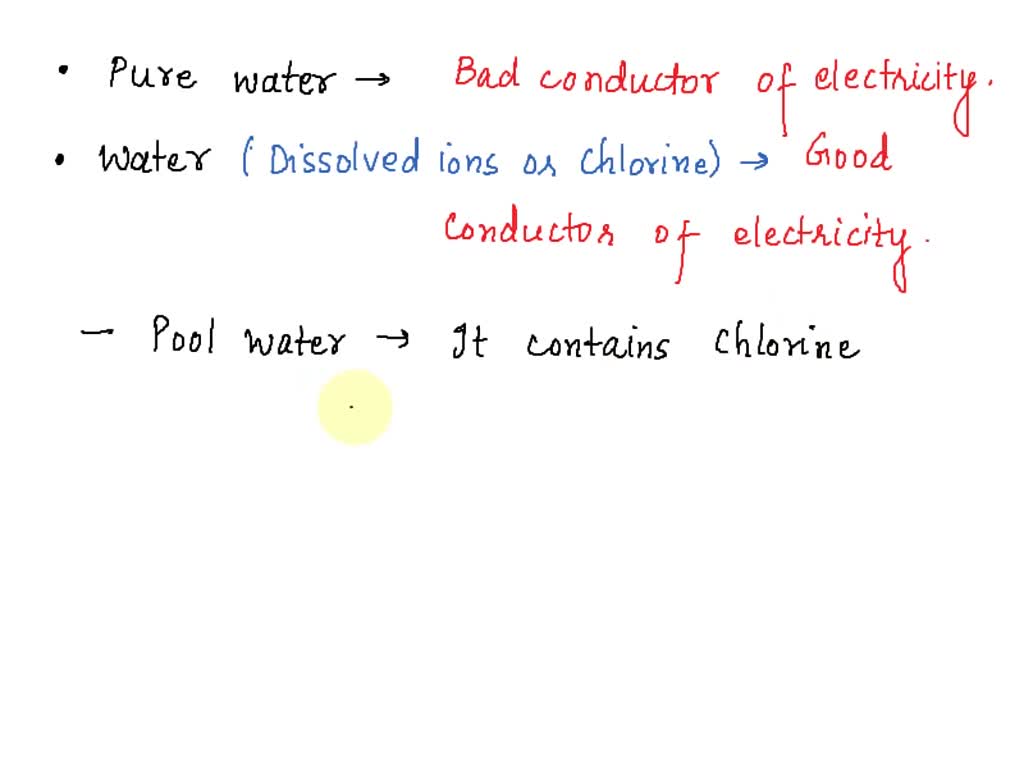 • Pure water → Bad conductor of electricity.
• Water (Dissolved ions or Chlorine) → Good
conductor of electricity.
- Pool water → It contains chlorine